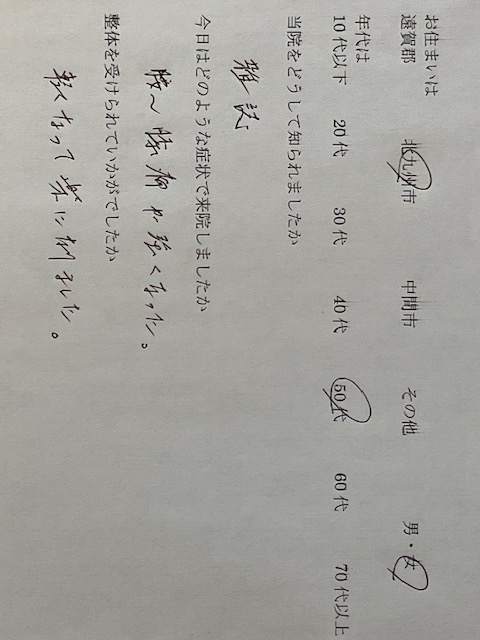 お住まいは
遠賀郡 北九州市 中間市 その他 男・女
年代は
10代以下 20代 30代 40代 50代 60代 70代以上
当院をどうして知られましたか
雑誌
今日はどのような症状で来院しましたか
腰〜膝痛が強くなった。
整体を受けられていかがでしたか
軽くなって楽に りました。